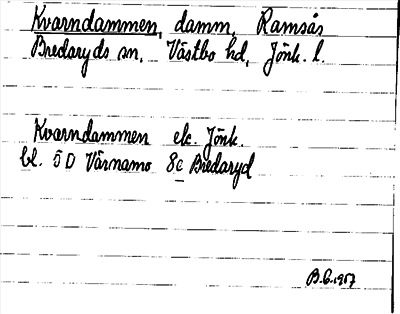 Kvarndammen, damm, Ramsås
Bredaryds sn, Västbo hd, Jönk. l.
Kvarndammen ek. Jönk.
bl. 5 D Värnamo 8c Bredaryd
B.G. 1967